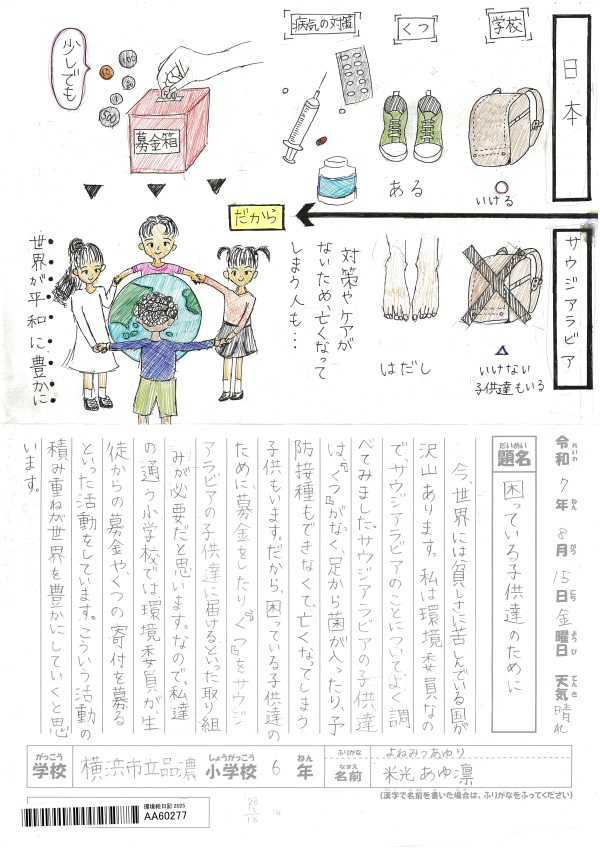 日本
学校
くつ
病気の対策
いける
ある
少しでも
募金箱
サウジアラビア
いけない
子供達もいる
はだし
対策やケアが
ないため、亡くなって
しまう人も…
だから
世界が平和に豊かに
令和7年8月15日金曜日 天気晴れ
れいわ ねん がつ にち ようび てんき
だいめい
題名
困っている子供達のために
今、世界には貧しさに苦しんでいる国が
沢山あります。私は環境委員なの
で、サウジアラビアのことについてよく調
べてみました。サウジアラビアの子供達
は、「くつ」がなく、足から菌が入ったり、予
防接種もできなくて、亡くなってしまう
子供もいます。だから、困っている子供達の
ために、募金をしたり「くつ」をサウジ
アラビアの子供達に届けるといった取り組
みが必要だと思います。なので、私達
の通う小学校では、環境委員が生
徒からの募金や、くつの寄付を募る
といった活動をしています。こういう活動の
積み重ねが世界を豊かにしていくと思
います。
がっこう しょうがっこう ねん
学校 横浜市立品濃小学校 6年
ふりがな よねみつあゆり
なまえ
名前 米光あゆ凛
(漢字で名前を書いた場合は、ふりがなをふってください)
環境絵日記 2025
AA60277